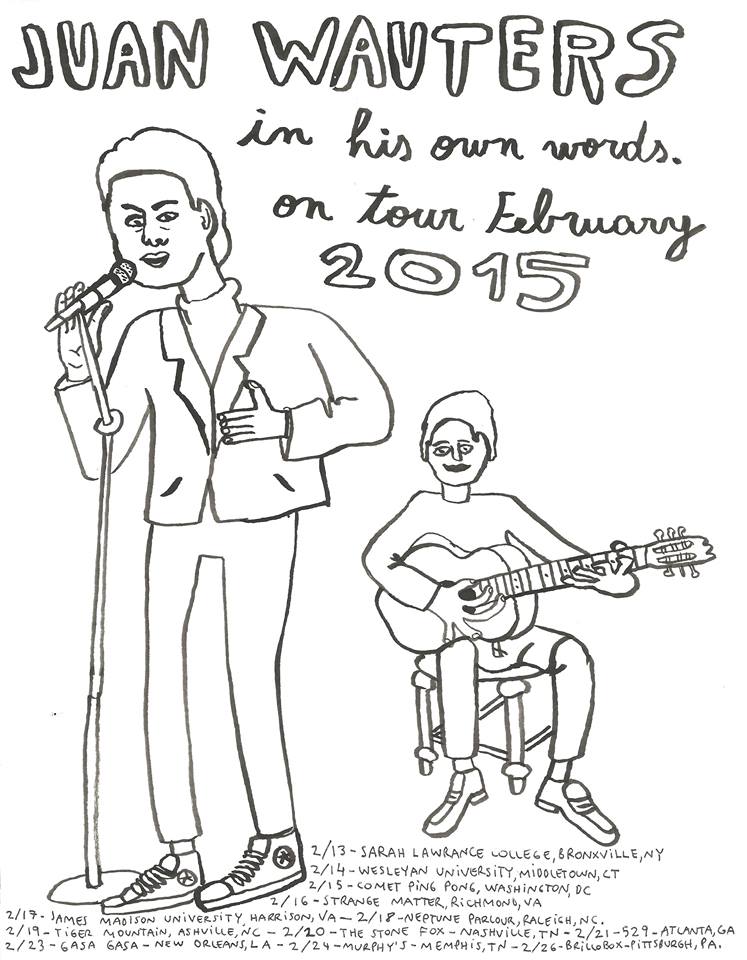 JUAN WAUTERS
in his own words.
on tour February
2015
2/13 - SARAH LAWRANCE COLLEGE, BRONXVILLE, NY
2/14 - WESLEYAN UNIVERSITY, MIDDLETOWN, CT
2/15 - COMET PING PONG, WASHINGTON, DC
2/16 - STRANGE MATTER, RICHMOND, VA
2/17 - JAMES MADISON UNIVERSITY, HARRISON, VA - 2/18 - NEPTUNE PARLOUR, RALEIGH, NC.
2/19 - TIGER MOUNTAIN, ASHVILLE, NC - 2/20 - THE STONE FOX - NASHVILLE, TN - 2/21 - 529 - ATLANTA, GA
2/23 - GASA GASA - NEW ORLEANS, LA - 2/24 - MURPHY'S - MEMPHIS, TN - 2/26 - BRILLOBOX - PITTSBURGH, PA.